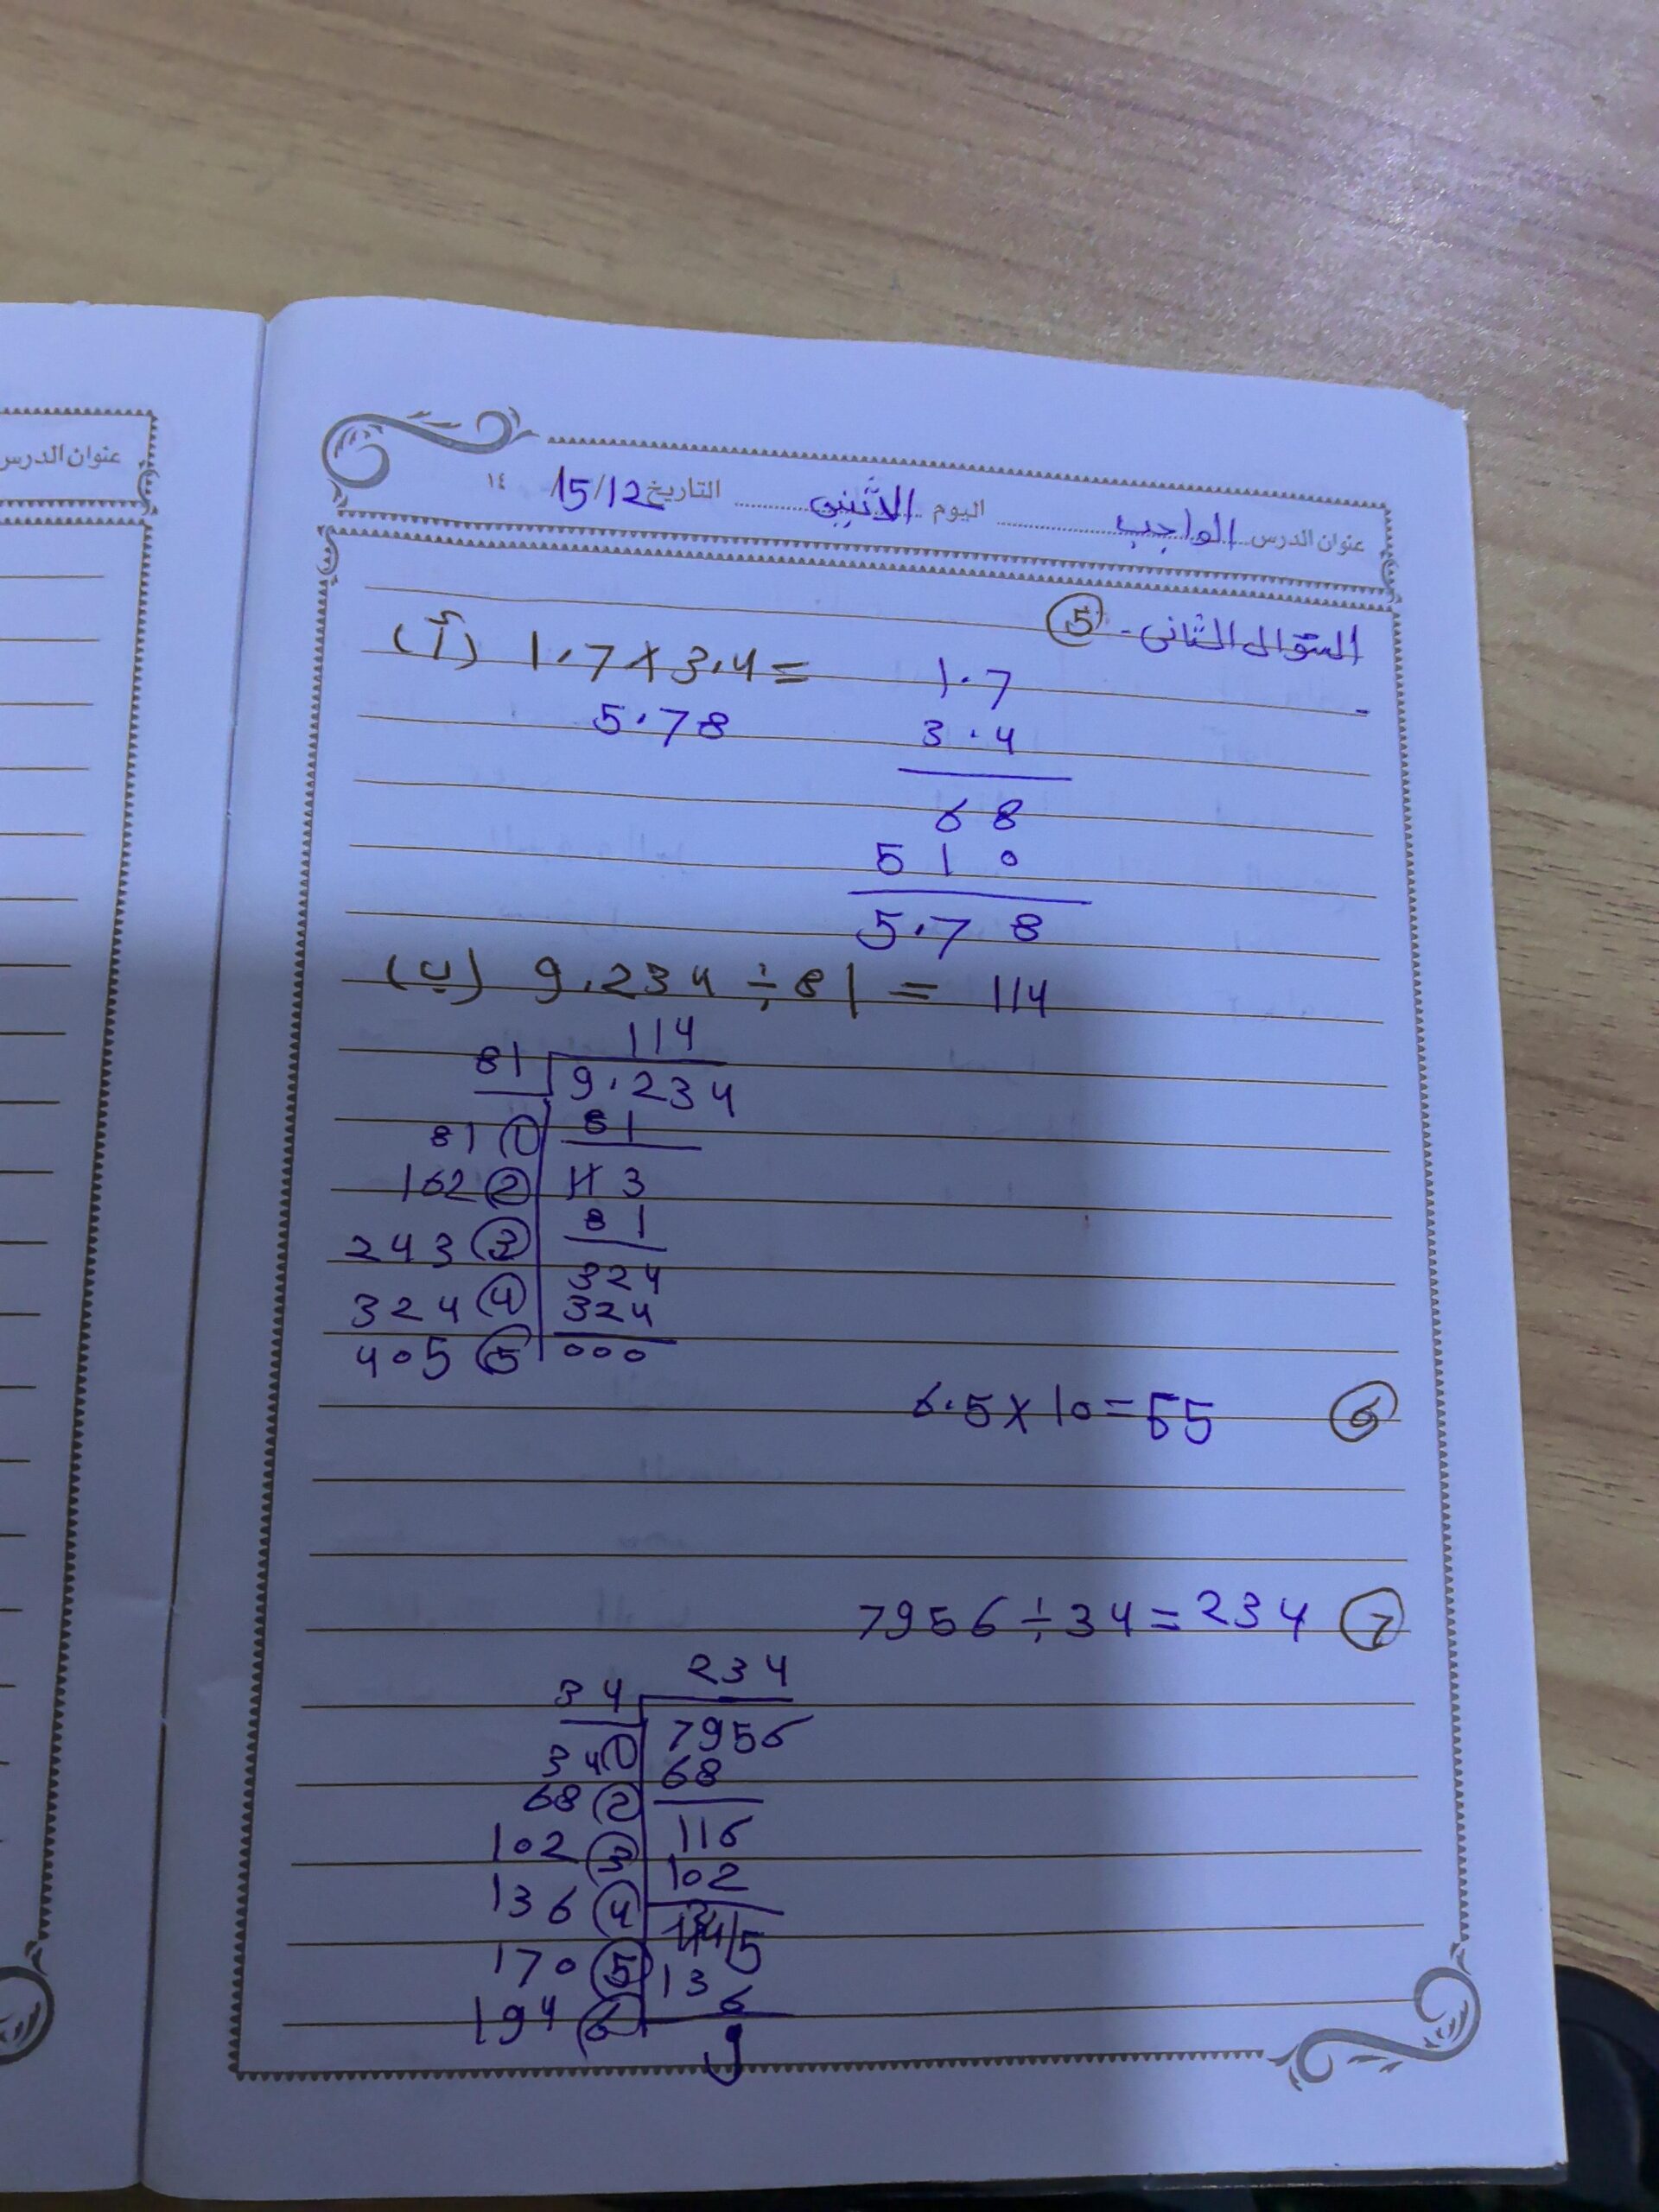 عنوان الدرس
عنوان الدرس الواجب اليوم الاثنين التاريخ 15/12 ١٤
السؤال الثاني - 5
(أ) 1.7 x 3.4 =
5.78
1.7
3.4
68
510
5.78
(ب) 9.234 ÷ 81 = 114
114
81 9.234
81 ① 81
162 ② 113
243 ③ 81
324 ④ 324
324
405 ⑤ 000
6.5 x 10 = 65 ⑥
7956 ÷ 34 = 234 ⑦
234
34 7956
34 ① 68
68 ② 116
102 ③ 102
136 ④
170 ⑤ 136
194 ⑥